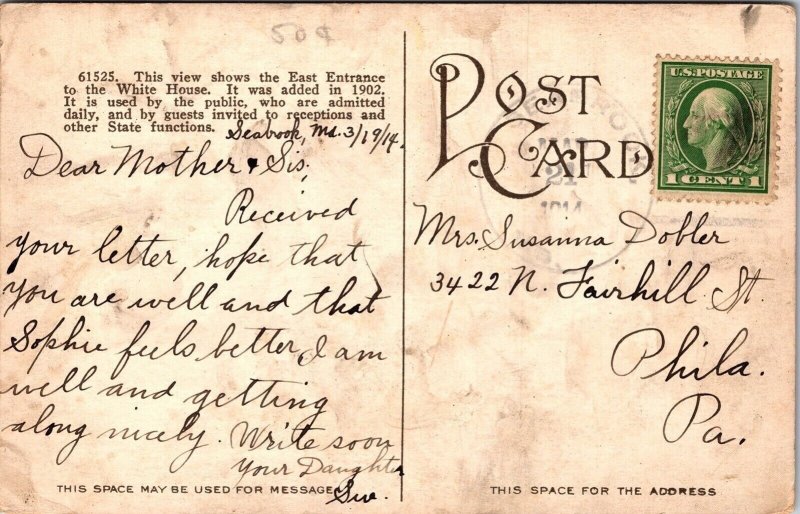 50¢
61525. This view shows the East Entrance
to the White House. It was added in 1902.
It is used by the public, who are admitted
daily, and by guests invited to receptions and
other State functions.
Seabrook, Md. 3/19/14.
Dear Mother & Sis,
Received
your letter, hope that
you are well and that
Sophie feels better, I am
well and getting
along nicely. Write soon
Your Daughter
Sue.
THIS SPACE MAY BE USED FOR MESSAGE
POST
CARD
21
1914
U.S. POSTAGE
1 CENT 1
Mrs. Susanna Dobler
3422 N. Fairhill St.
Phila.
Pa.
THIS SPACE FOR THE ADDRESS